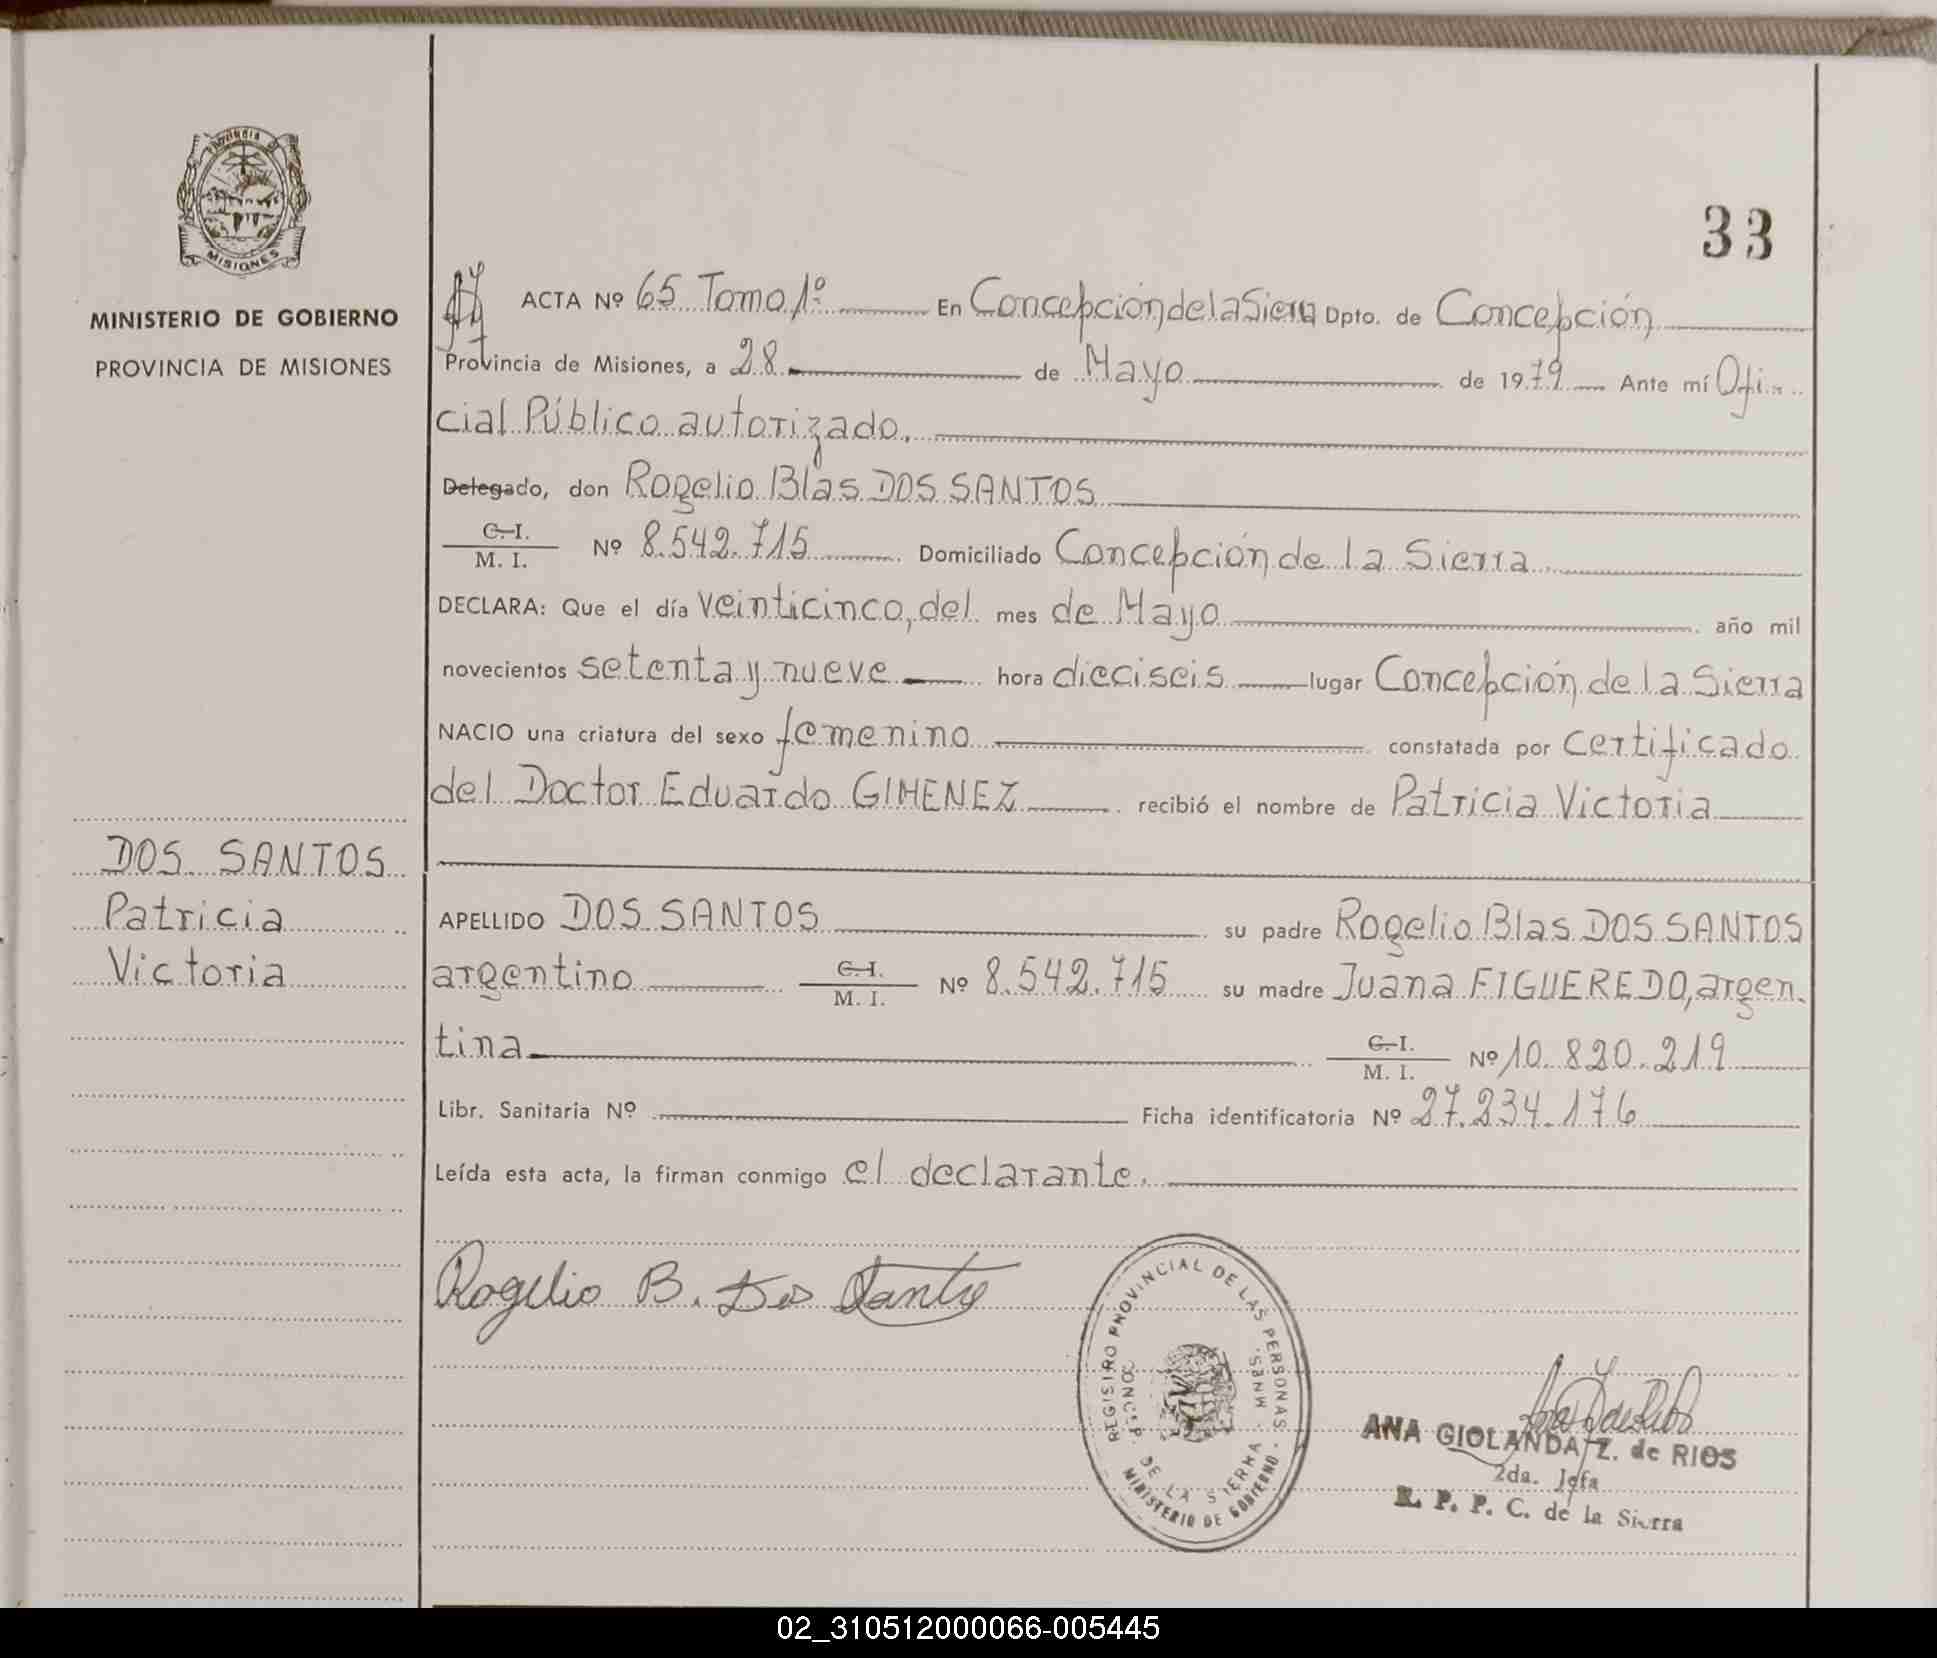 33
Provincia de
MISIONES
MINISTERIO DE GOBIERNO
PROVINCIA DE MISIONES
ACTA Nº 65 Tomo 1º En Concepción de la Sierra Dpto. de Concepción
Provincia de Misiones, a 28 de Mayo de 1979 Ante mí Ofi-
cial Público autorizado,
Delegado, don Rogelio Blas DOS SANTOS
C.I.
M. I. Nº 8.542.715 Domiciliado Concepción de la Sierra
DECLARA: Que el día veinticinco, del mes de Mayo año mil
novecientos setenta y nueve hora dieciseis lugar Concepción de la Sierra
NACIO una criatura del sexo femenino constatada por certificado
del Doctor Eduardo GIMENEZ recibió el nombre de Patricia Victoria
DOS SANTOS
Patricia
Victoria
APELLIDO DOS SANTOS su padre Rogelio Blas DOS SANTOS
argentino C.I. M. I. Nº 8.542.715 su madre Juana FIGUEREDO, argen-
tina C.I. M. I. Nº 10.820.219
Libr. Sanitaria Nº Ficha identificatoria Nº 27.234.176
Leída esta acta, la firman conmigo el declarante.
Rogelio B. Dos Santos
REGISTRO PROVINCIAL DE LAS PERSONAS
DE LA SIERRA
MINISTERIO DE GOBIERNO
ANA GIOLANDA Z. de RIOS
2da. Jefa
R. P. P. C. de la Sierra
02_310512000066-005445